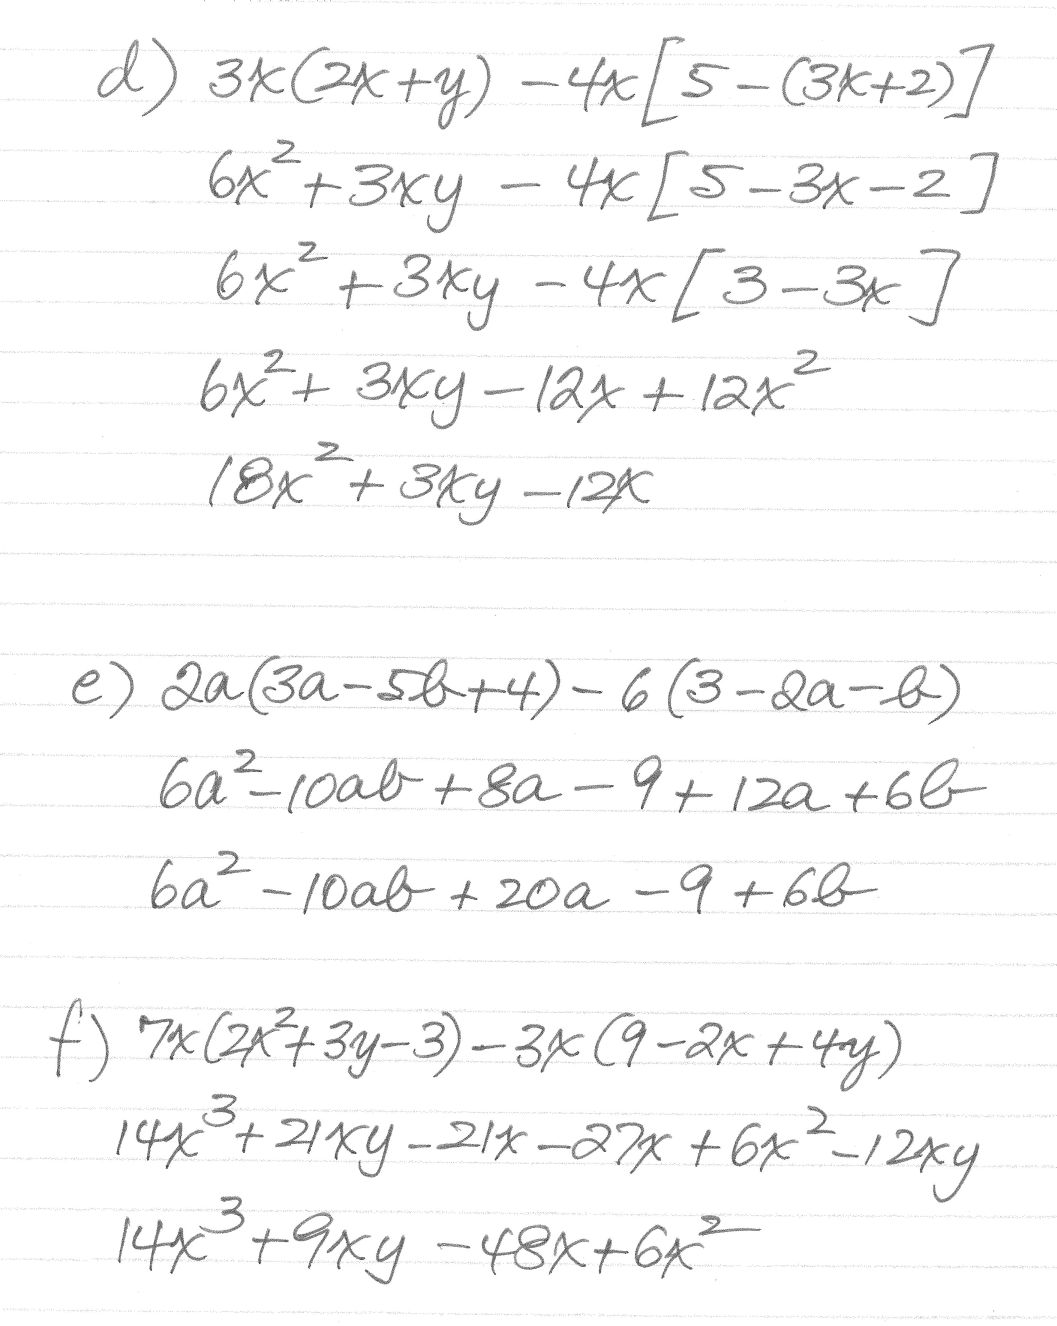 d) 3x(2x+y) -4x[5-(3x+2)]
6x²+3xy - 4x[5-3x-2]
6x²+3xy -4x[3-3x]
6x²+3xy-12x+12x²
18x²+3xy-12x
e) 2a(3a-5b+4)-6(3-2a-b)
6a²-10ab+8a-9+12a+6b
6a²-10ab+20a-9+6b
f) 7x(2x²+3y-3)-3x(9-2x+4y)
14x³+21xy-21x-27x+6x²-12xy
14x³+9xy-48x+6x²